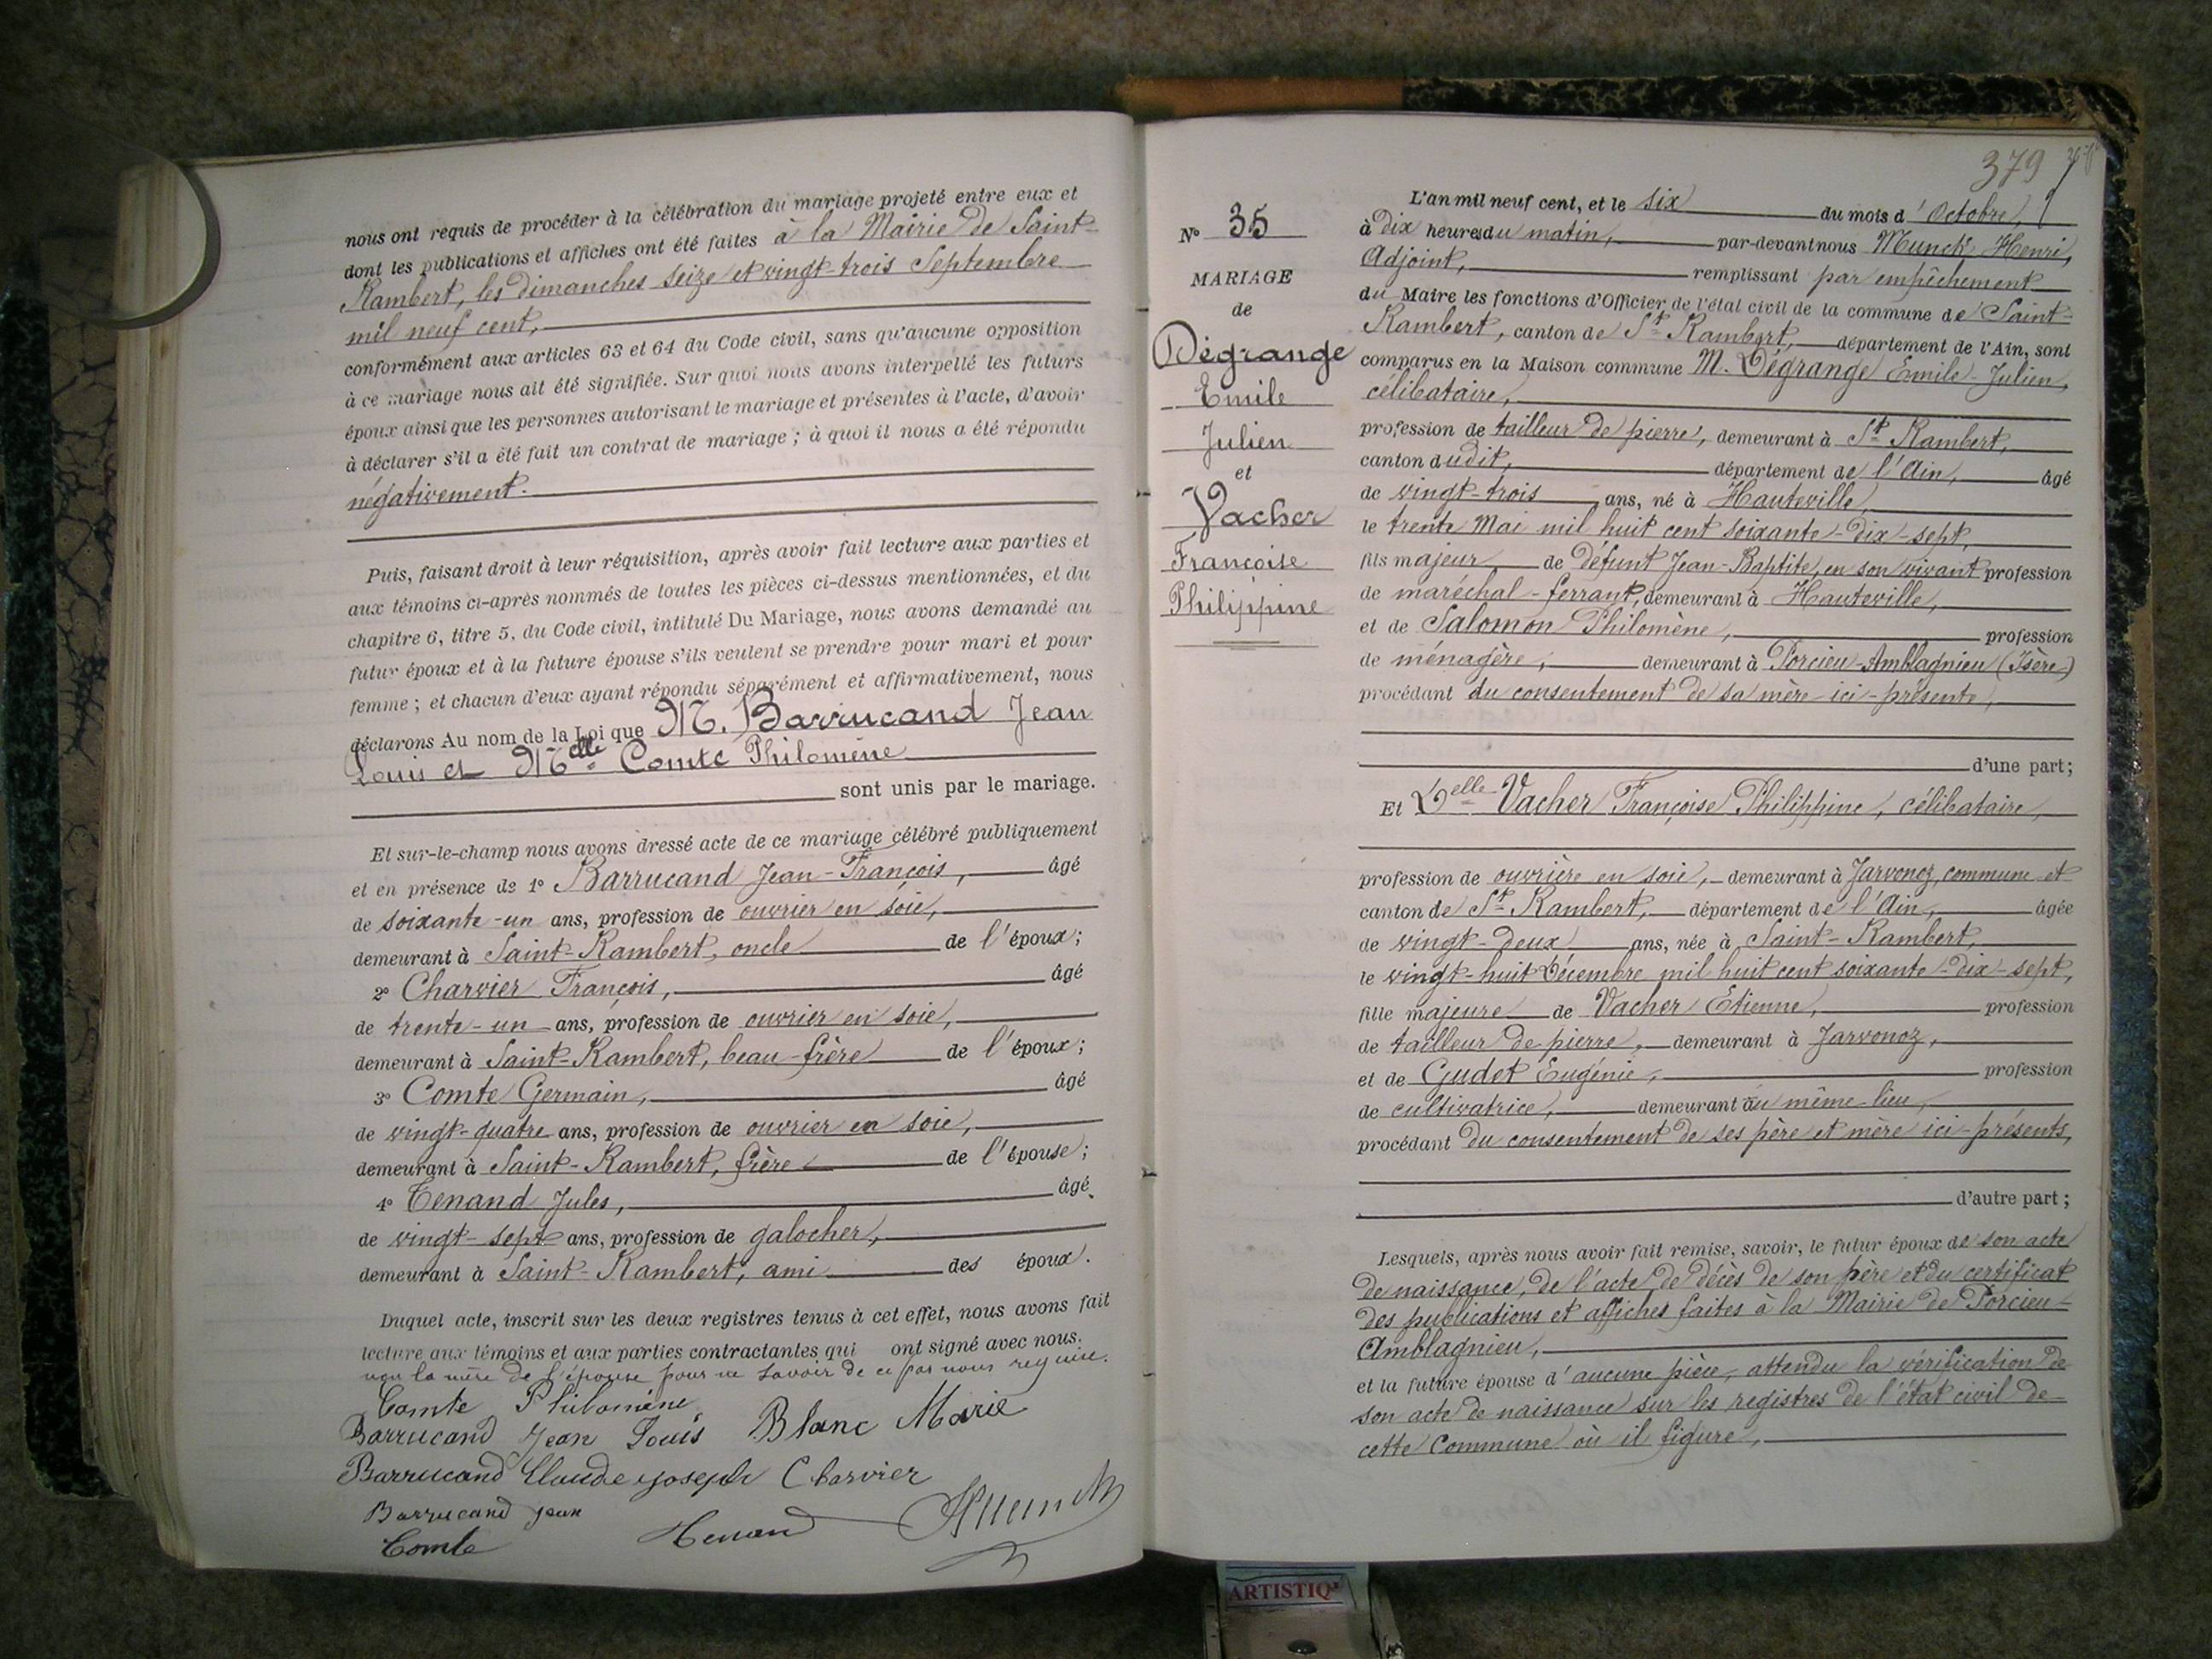 nous ont requis de procéder à la célébration du mariage projeté entre eux et
dont les publications et affiches ont été faites à la Mairie de Saint-
Rambert, les dimanches seize et vingt-trois Septembre
mil neuf cent,
conformément aux articles 63 et 64 du Code civil, sans qu'aucune opposition
à ce mariage nous ait été signifiée. Sur quoi nous avons interpellé les futurs
époux ainsi que les personnes autorisant le mariage et présentes à l'acte, d'avoir
à déclarer s'il a été fait un contrat de mariage ; à quoi il nous a été répondu
négativement.
Puis, faisant droit à leur réquisition, après avoir fait lecture aux parties et
aux témoins ci-après nommés de toutes les pièces ci-dessus mentionnées, et du
chapitre 6, titre 5, du Code civil, intitulé Du Mariage, nous avons demandé au
futur époux et à la future épouse s'ils veulent se prendre pour mari et pour
femme ; et chacun d'eux ayant répondu séparément et affirmativement, nous
déclarons Au nom de la Loi que M. Barrucand Jean
Louis et Melle Comte Philomène
sont unis par le mariage.
Et sur-le-champ nous avons dressé acte de ce mariage célébré publiquement
et en présence de 1° Barrucand Jean-François, âgé
de soixante-un ans, profession de ouvrier en soie,
demeurant à Saint-Rambert, oncle de l'époux ;
2° Charvier François, âgé
de trente-un ans, profession de ouvrier en soie,
demeurant à Saint-Rambert, beau-frère de l'époux ;
3° Comte Germain, âgé
de vingt-quatre ans, profession de ouvrier en soie,
demeurant à Saint-Rambert, frère de l'épouse ;
4° Tenand Jules, âgé
de vingt-sept ans, profession de galocher,
demeurant à Saint-Rambert, ami des époux.
Duquel acte, inscrit sur les deux registres tenus à cet effet, nous avons fait
lecture aux témoins et aux parties contractantes qui ont signé avec nous.
non la mère de l'épouse pour ne savoir de ce par nous requise.
Comte Philomène
Barrucand Jean Louis Blanc Marie
Barrucand Claude joseph Charvier
Barrucand jean
Comte Tenand HMunck
379
N° 35
MARIAGE
de
Dégrange
Emile
Julien
et
Vacher
Françoise
Philippine
L'an mil neuf cent, et le six du mois d'Octobre,
à dix heures du matin, par-devant nous Munck Henri,
Adjoint, remplissant par empêchement
du Maire les fonctions d'Officier de l'état civil de la commune de Saint-
Rambert, canton de St Rambert, département de l'Ain, sont
comparus en la Maison commune M. Dégrange Emile-Julien,
célibataire,
profession de tailleur de pierre, demeurant à St Rambert,
canton dudit, département de l'Ain, âgé
de vingt-trois ans, né à Hauteville,
le trente Mai mil huit cent soixante-dix-sept,
fils majeur de défunt Jean-Baptite, en son vivant profession
de maréchal-ferrant, demeurant à Hauteville,
et de Salomon Philomène, profession
de ménagère, demeurant à Porcieu-Amblagnieu (Isère)
procédant du consentement de sa mère ici-présente,
d'une part ;
Et Delle Vacher Françoise Philippine, célibataire,
profession de ouvrière en soie, demeurant à Javronoz, commune et
canton de St Rambert, département de l'Ain, âgée
de vingt-deux ans, née à Saint-Rambert,
le vingt-huit Décembre mil huit cent soixante-dix-sept,
fille majeure de Vacher Etienne, profession
de tailleur de pierre, demeurant à Javronoz,
et de Gudet Eugénie, profession
de cultivatrice, demeurant au même lieu,
procédant du consentement de ses père et mère ici-présents,
d'autre part ;
Lesquels, après nous avoir fait remise, savoir, le futur époux de son acte
de naissance, de l'acte de décès de son père et du certificat
des publications et affiches faites à la Mairie de Porcieu-
Amblagnieu,
et la future épouse d'aucune pièce, attendu la vérification de
son acte de naissance sur les registres de l'état civil de
cette Commune où il figure,
ARTISTIQ'